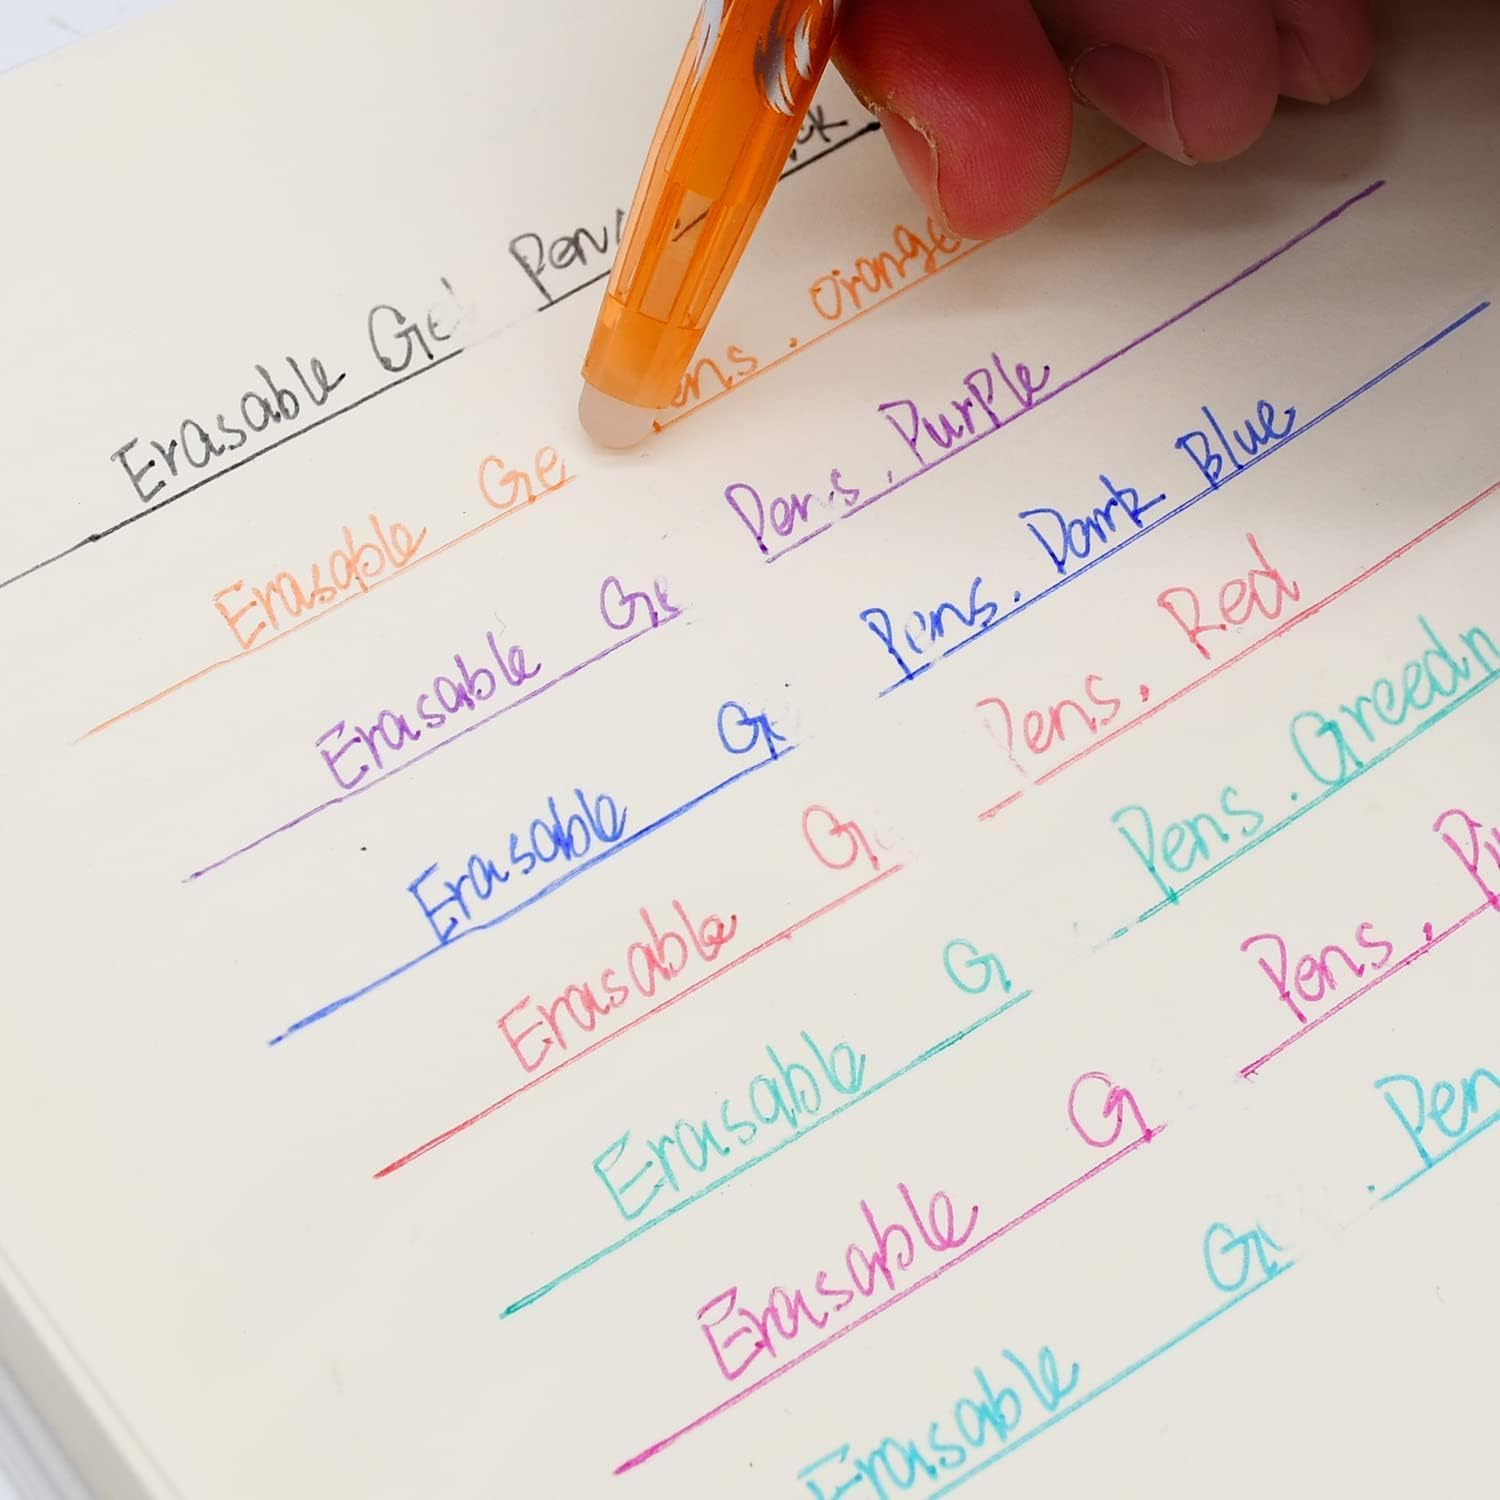 Erasable Ge Pens ck
Erasable Ge ens . Orange
Erasable Ge Pens . Purple
Erasable Ge Pens . Dark Blue
Erasable G Pens . Red
Erasable G Pens . Greedn
Erasable G Pens . Pi
Erasable Ge . Pen